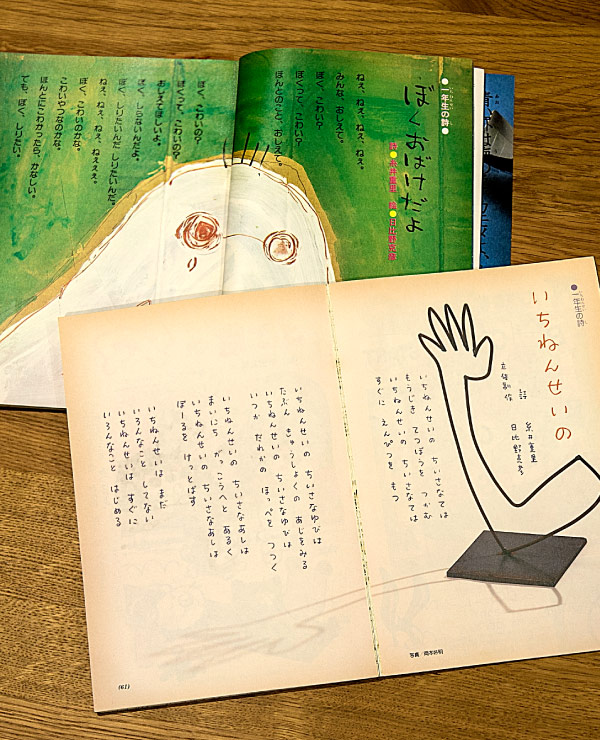 ●一年生の詩●
ぼくおばけだよ
詩●糸井重里 絵●日比野克彦
ねぇ、ねぇ、ねぇ、ねぇ。
みんな、おしえて。
ぼく、こわい?
ぼくって、こわい?
ほんとのこと、おしえて。
ぼく、こわいの?
ぼくって、こわいの?
おしえてほしいよ。
ぼく、しらないんだよ。
ぼく、しりたいんだ しりたいんだ。
ねぇ、ねぇ、ねぇ、ねぇぇ。
ぼく、こわいのかな。
こわいやつなのかな。
ほんとにこわかったら、かなしい。
でも、ぼく、しりたい。
●一年生の詩
いちねんせいの
詩 糸井重里
立体制作 日比野克彦
いちねんせいの ちいさなては
もうじき てつぼうを つかむ
いちねんせいの ちいさなては
すぐに えんぴつを もつ
いちねんせいの ちいさなゆびは
たぶん きゅうしょくの あじをみる
いちねんせいの ちいさなゆびは
いつか だれかの ほっぺを つつく
いちねんせいの ちいさなあしは
まいにち がっこうへと あるく
いちねんせいの ちいさなあしは
ぼーるを けっとばす
いちねんせいは まだ
いろんなこと してない
いちねんせいは すぐに
いろんなこと はじめる
写真/岡本尚明
(61)